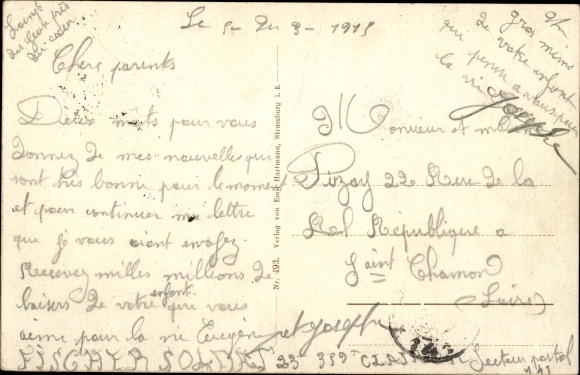 Loins
des yeux près
du cœur
Le 5- Du 3- 1915
Chers parents
Deux mots pour vous
donnez de mes nouvelles qui
sont très bonne pour le moment
et pour continuer ma lettre
que je vous aient envoyez
Recevez milles millions de
baisers de votre enfant que vous
aime pour la vie Eugène et Joseph
gros mimis
de votre enfant
qui pense a vous pour
la vie
Joseph
Nr. 493. Verlag von Emil Hartmann, Strassburg i. E.
Monsieur et
Pizay 22 Rue de la
République a
Saint Chamond
(Loire)
SOLDAT 23 359
Secteur postal
141